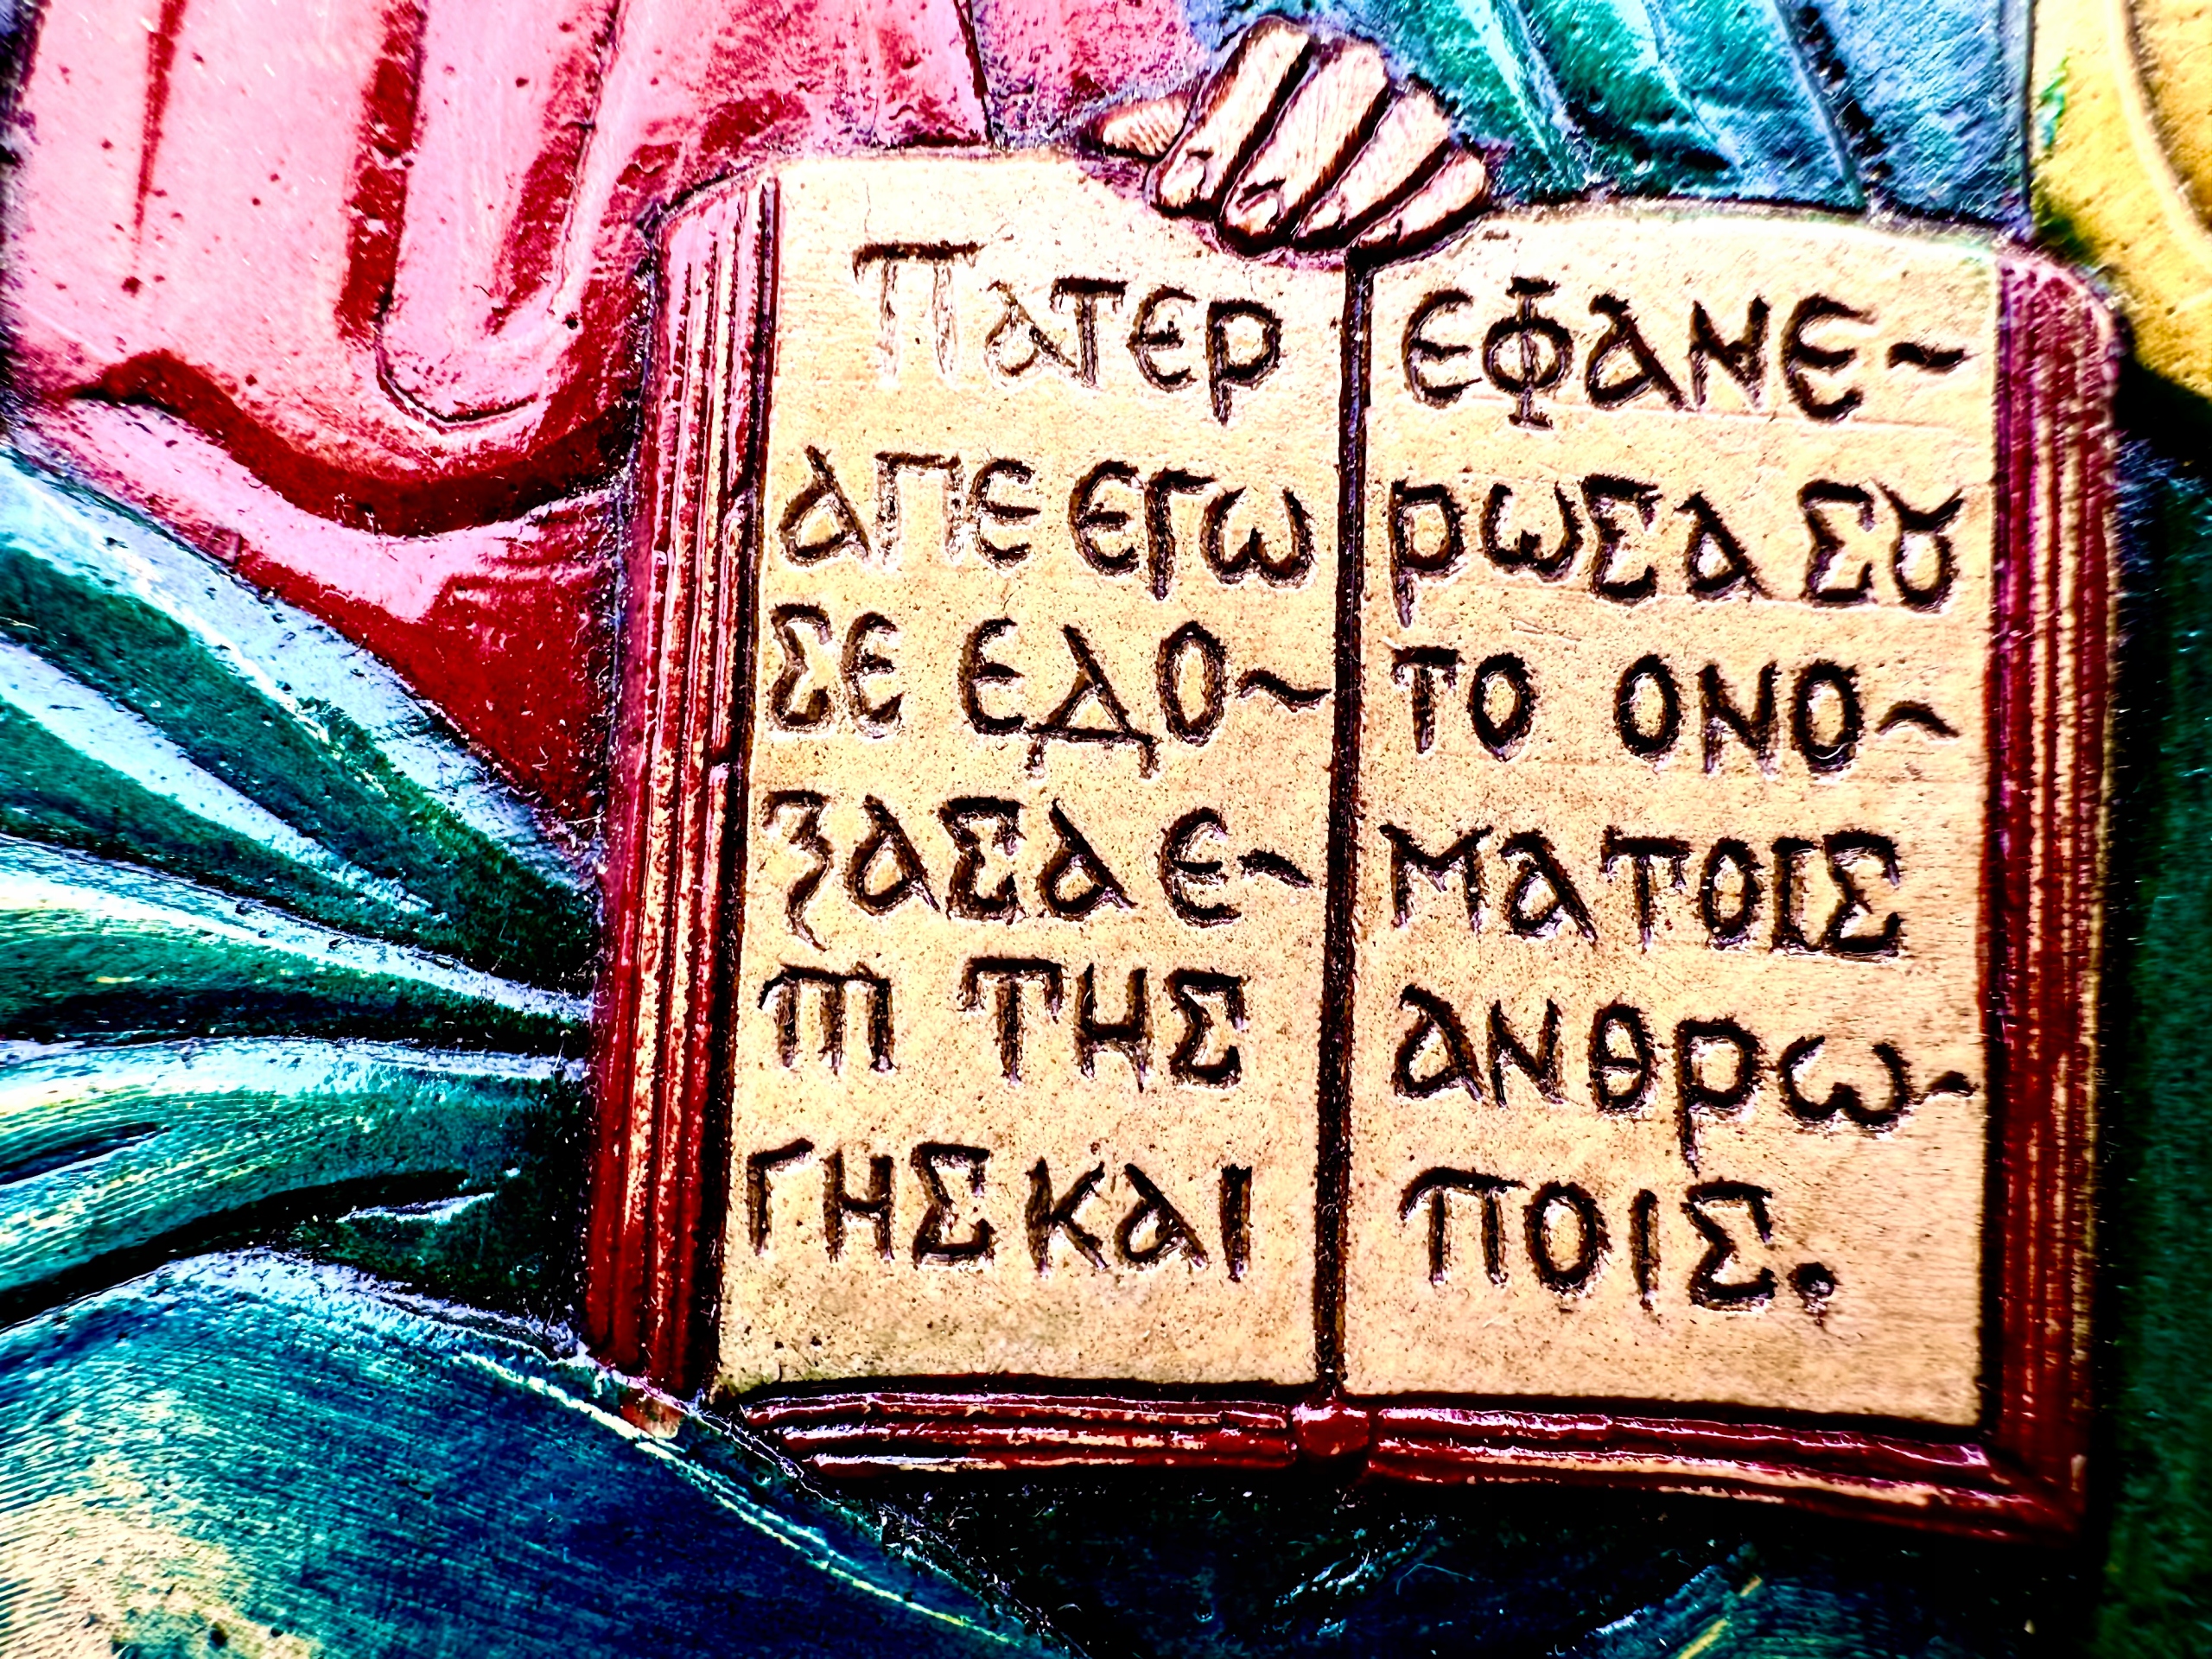 Πατερ
αΓΙΕ ΕΓω
ΣΕ ΕΔΟ~
ξαΣα Ε~
ΠΙ ΤΗΣ
ΓΗΣ ΚαΙ
ΕΦαΝΕ~
ΡωΣα Σȣ
ΤΟ ΟΝΟ~
Μα ΤΟΙΣ
αΝθΡω~
ΠΟΙΣ.